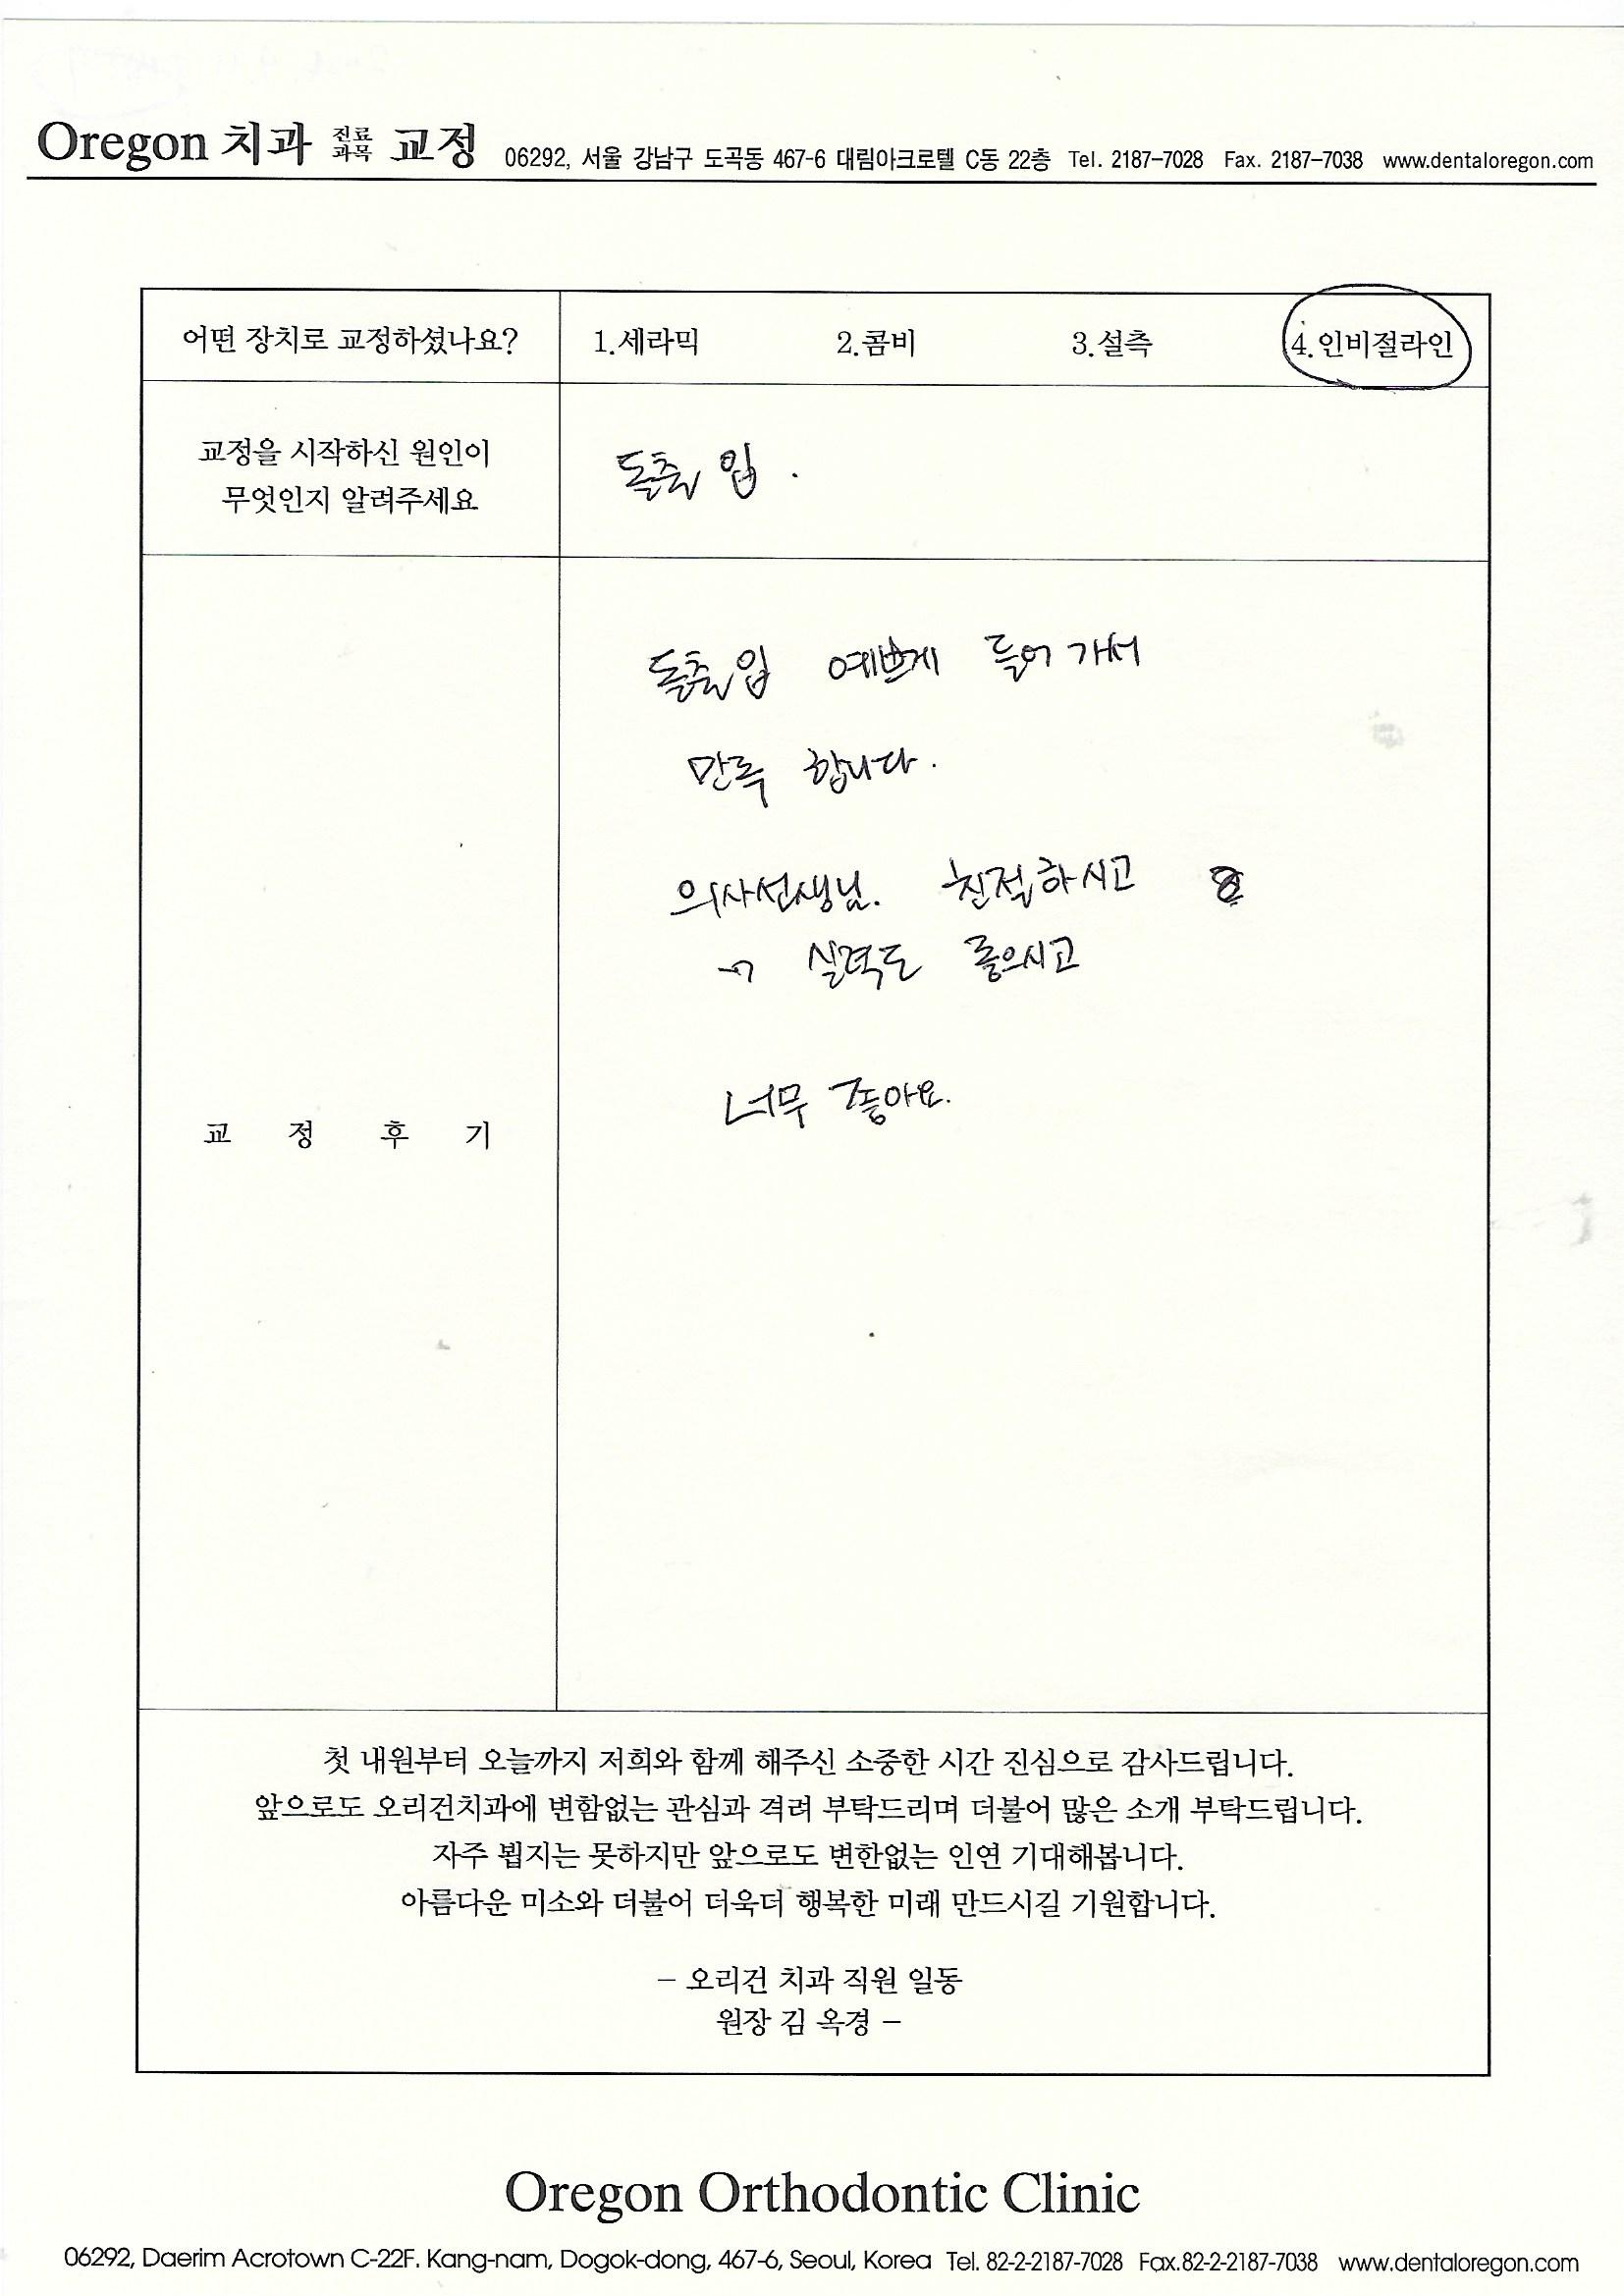 Oregon 치과 진료과목 교정 06292, 서울 강남구 도곡동 467-6 대림아크로텔 C동 22층 Tel. 2187-7028 Fax. 2187-7038 www.dentaloregon.com
어떤 장치로 교정하셨나요? 1.세라믹 2.콤비 3.설측 4.인비절라인
교정을 시작하신 원인이
무엇인지 알려주세요
돌출 입.
돌출입 예쁘게 들어가서
만족 합니다.
의사선생님. 친절하시고
실력도 좋으시고
너무 좋아요.
교 정 후 기
첫 내원부터 오늘까지 저희와 함께 해주신 소중한 시간 진심으로 감사드립니다.
앞으로도 오리건치과에 변함없는 관심과 격려 부탁드리며 더불어 많은 소개 부탁드립니다.
자주 뵙지는 못하지만 앞으로도 변한없는 인연 기대해봅니다.
아름다운 미소와 더불어 더욱더 행복한 미래 만드시길 기원합니다.
– 오리건 치과 직원 일동
원장 김 옥경 –
Oregon Orthodontic Clinic
06292, Daerim Acrotown C-22F. Kang-nam, Dogok-dong, 467-6, Seoul, Korea Tel. 82-2-2187-7028 Fax.82-2-2187-7038 www.dentaloregon.com